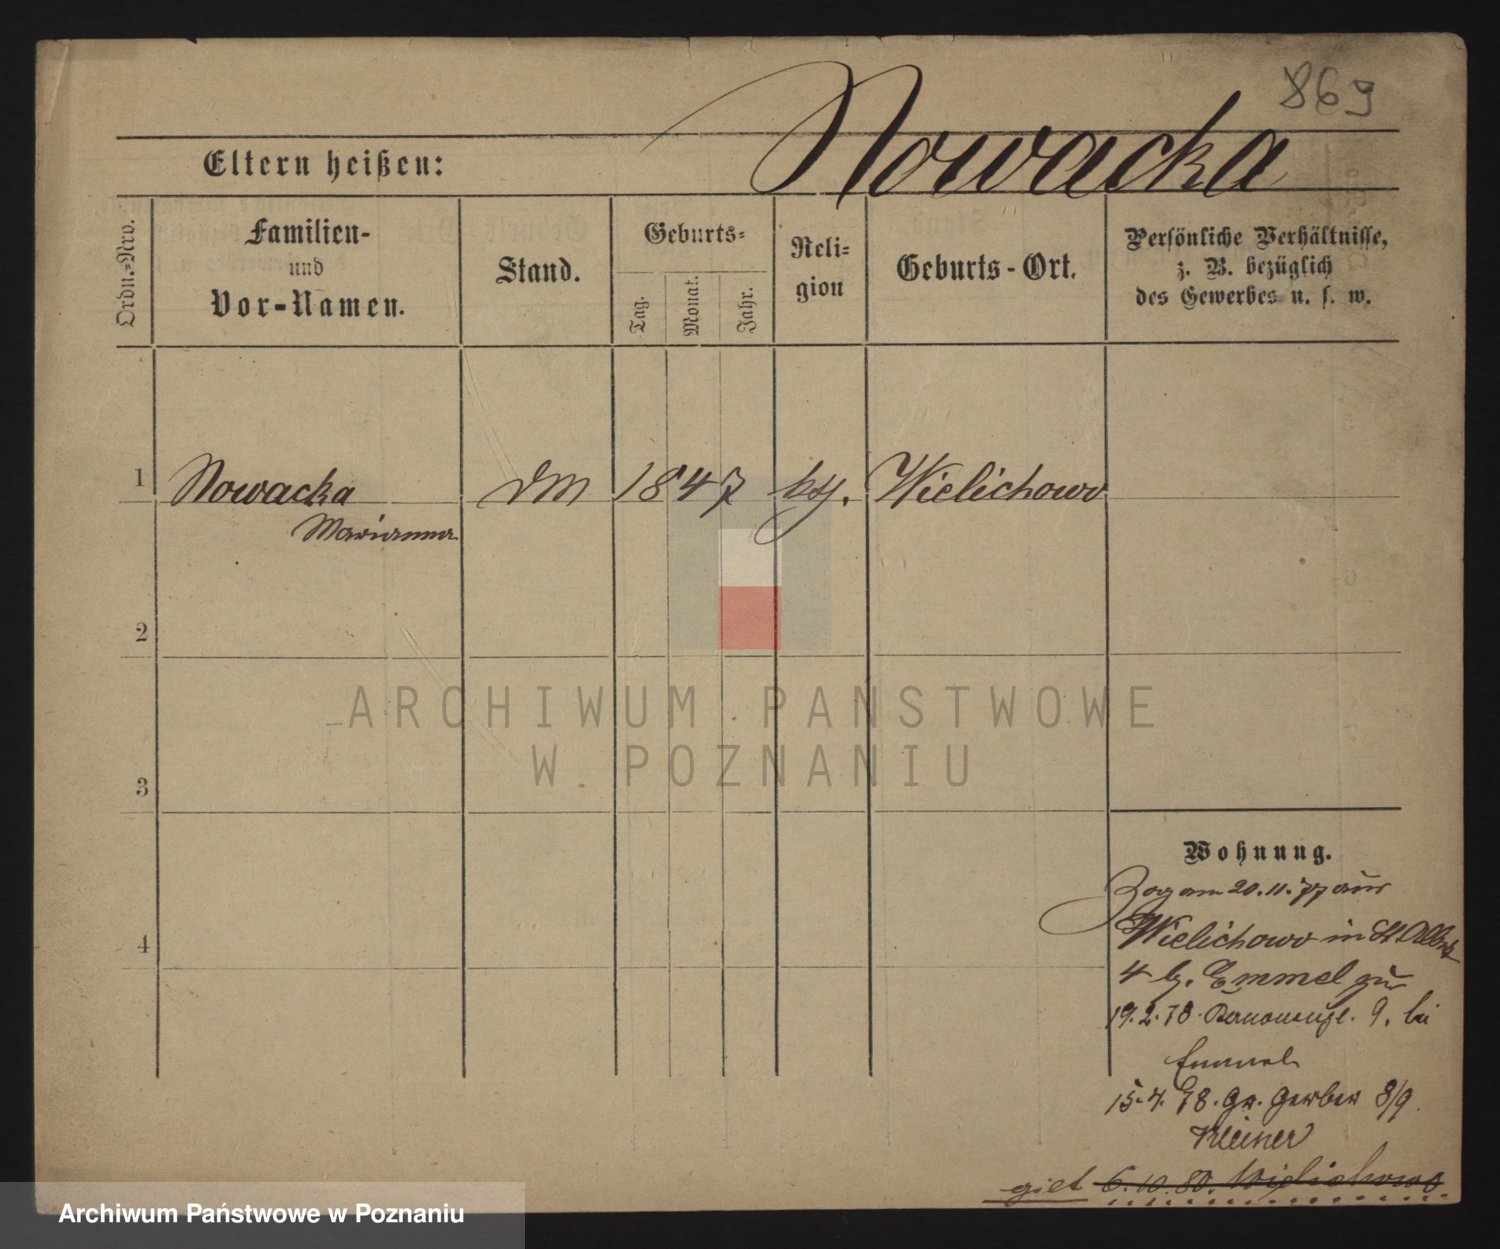 869
Nowacka
Eltern heißen:
Ordn.-Nro.
Familien-
und
Vor-Namen.
Stand.
Geburts-
Tag.
Monat.
Jahr.
Reli-
gion
Geburts-Ort.
Persönliche Verhältnisse,
z. B. bezüglich
des Gewerbes u. s. w.
1
Nowacka
Marianna
DM
1847
Wielichowo
2
3
4
ARCHIWUM PAŃSTWOWE
W POZNANIU
Wohnung.
Zog am 20.11.77 aus
Wielichowo in St
4 b. Emmel zu
19.2.78. 9. bei
Emmel
15.4.78. Gr. Gerber 8/9
Kleiner
gilt 6.10.80. Wielichowo
Archiwum Państwowe w Poznaniu